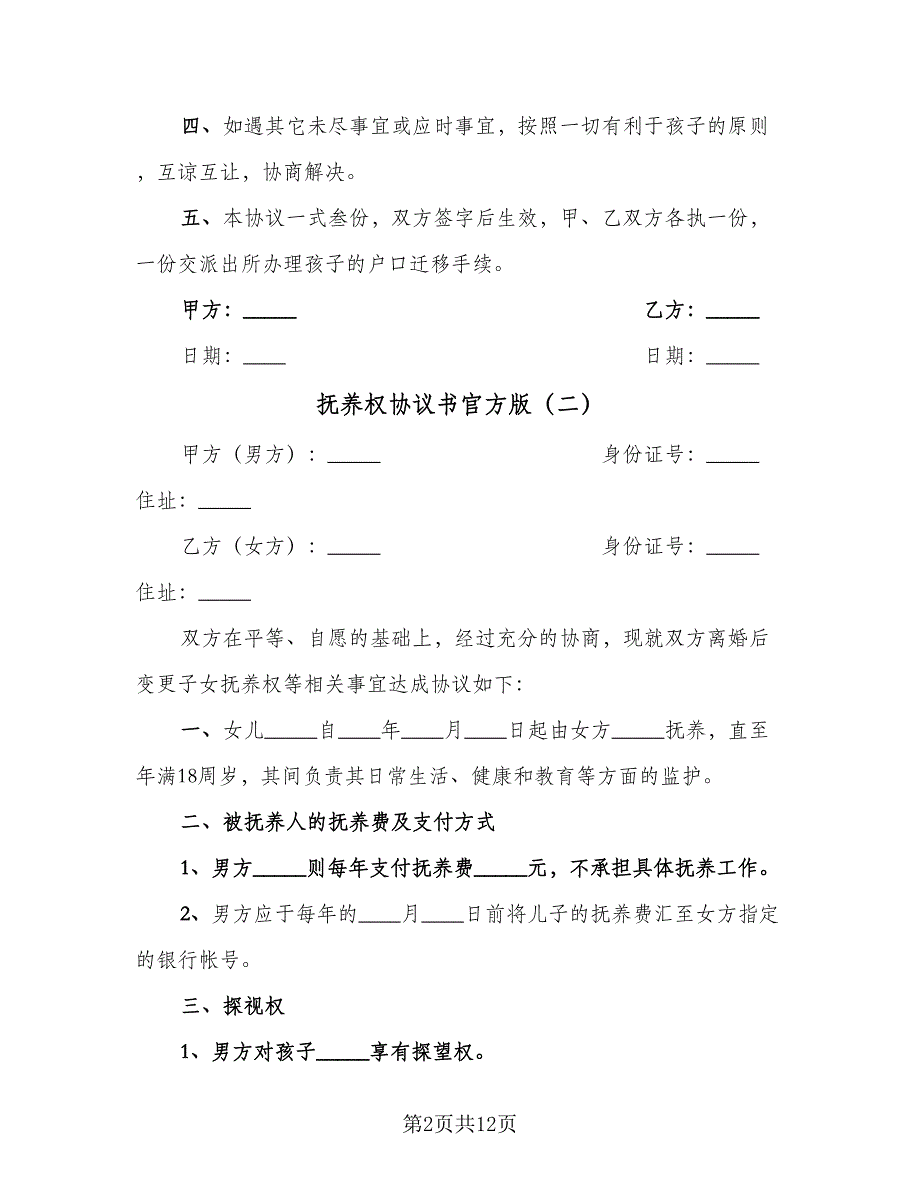 四、如遇其它未尽事宜或应时事宜，按照一切有利于孩子的原则
，互谅互让，协商解决。
五、本协议一式叁份，双方签字后生效，甲、乙双方各执一份，
一份交派出所办理孩子的户口迁移手续。
甲方：_____ 乙方：_____
日期：____ 日期：_____
抚养权协议书官方版（二）
甲方（男方）：_____ 身份证号：_____
住址：_____
乙方（女方）：_____ 身份证号：_____
住址：_____
双方在平等、自愿的基础上，经过充分的协商，现就双方离婚后
变更子女抚养权等相关事宜达成协议如下：
一、女儿_____自____年____月____日起由女方_____抚养，直至
年满18周岁，其间负责其日常生活、健康和教育等方面的监护。
二、被抚养人的抚养费及支付方式
1、男方_____则每年支付抚养费_____元，不承担具体抚养工作。
2、男方应于每年的____月____日前将儿子的抚养费汇至女方指定
的银行帐号。
三、探视权
1、男方对孩子_____享有探望权。
第2页共12页